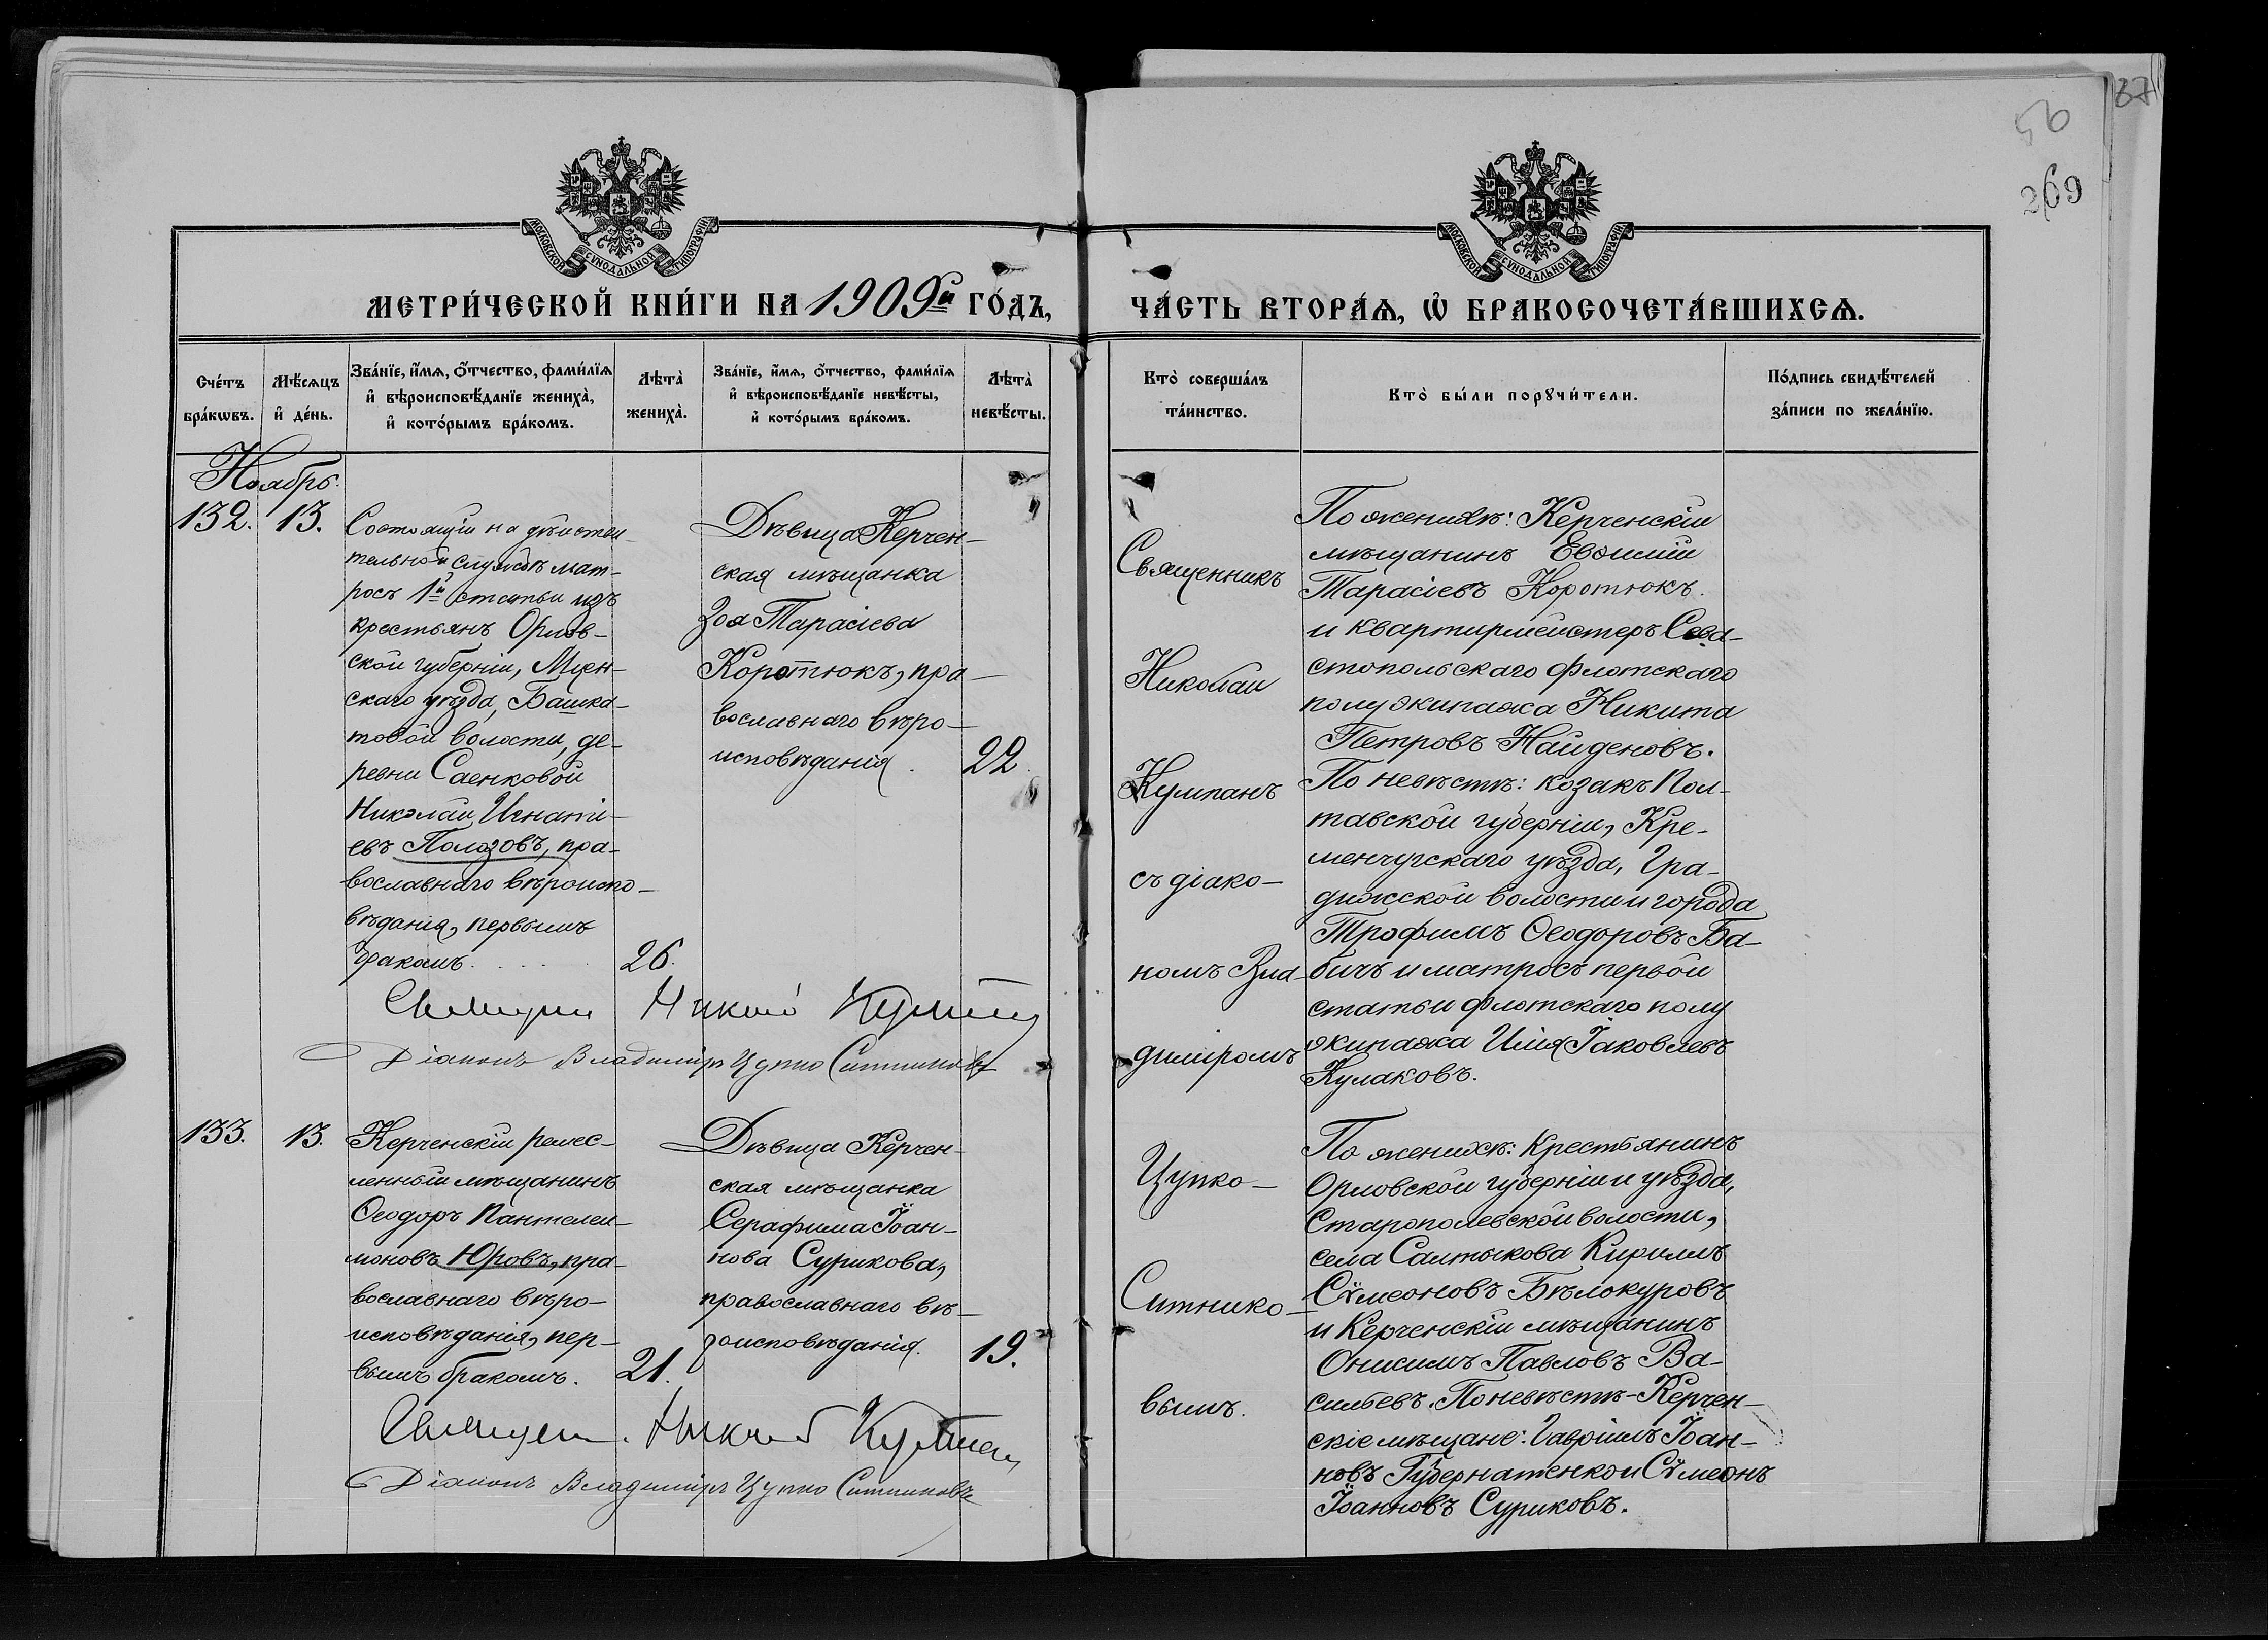 56
87
269
МОСКОВСКОЙ СѴНОДАЛЬНОЙ ТИПОГРАФІИ
МОСКОВСКОЙ СѴНОДАЛЬНОЙ ТИПОГРАФІИ
МЕТРИ́ЧЕСКОЙ КНИ́ГИ НА 1909й ГО́ДЪ,
ЧА́СТЬ ВТОРА́Ѧ, Ѡ҆ БРАКОСОЧЕТА́ВШИХСѦ.
Сче́тъ
бра́кѡвъ.
Мѣ́сяцъ
и҆ де́нь.
Зва́нїе, и҆́мѧ, ѻ҆́тчество, фами́лїѧ
и҆ вѣроисповѣ́данїе жениха̀,
и҆ кото́рымъ бра́комъ.
Лѣта̀
жениха̀.
Зва́нїе, и҆́мѧ, ѻ҆́тчество, фами́лїѧ
и҆ вѣроисповѣ́данїе невѣ́сты,
и҆ кото́рымъ бра́комъ.
Лѣта̀
невѣ́сты.
Кто̀ соверша́лъ
та́инство.
Кто̀ бы́ли порꙋчи́тели.
По́дпись свидѣ́телей
за́писи по жела́нїю.
Ноябрь.
132. 13.
Состоящій на дѣйстви-
тельной службѣ мат-
росъ 1й статьи изъ
крестьянъ Орлов-
ской губерніи, Мцен-
скаго уѣзда, Башка-
товой волости, де-
ревни Саенковой
Николай Игнаті-
евъ Полозовъ, пра-
вославнаго вѣроиспо-
вѣданія, первымъ
бракомъ. 26.
Дѣвица Керчен-
ская мѣщанка
Зоя Тарасіева
Коротюкъ, пра-
вославнаго вѣро-
исповѣданія. 22.
Священникъ
Николай
Кумпанъ
съ діако-
номъ Вла-
диміромъ
Цупко-
Ситнико-
вымъ.
По женихѣ: Керченскій
мѣщанинъ Евѳимій
Тарасіевъ Коротюкъ
и квартирмейстеръ Сева-
стопольскаго флотскаго
полуэкипажа Никита
Петровъ Найденовъ.
По невѣстѣ: козакъ Пол-
тавской губерніи, Кре-
менчугскаго уѣзда, Гра-
дижской волости и города
Трофимъ Ѳеодоровъ Ба-
бичъ и матросъ первой
статьи флотскаго полу
экипажа Илія Іаковлевъ
Кулаковъ.
Николай
Діаконъ Владиміръ Цупко Ситниковъ
133. 13.
Керченскій ремес-
ленный мѣщанинъ
Ѳеодоръ Пантелеи-
моновъ Юровъ, пра-
вославнаго вѣро-
исповѣданія, пер-
вымъ бракомъ. 21.
Дѣвица Керчен-
ская мѣщанка
Серафима Іоан-
нова Сурикова,
православнаго вѣ-
роисповѣданія. 19.
По женихѣ: крестьянинъ
Орловской губерніи и уѣзда,
Старополевской волости,
села Салтыкова Кириллъ
Сѵмеоновъ Бѣлокуровъ
и Керченскій мѣщанинъ
Онисимъ Павловъ Ва-
сильевъ. По невѣстѣ - Керчен-
скіе мѣщане: Гавріилъ Іоан-
новъ Губернатенко и Сѵмеонъ
Іоанновъ Суриковъ.
Николай
Діаконъ Владиміръ Цупко Ситниковъ